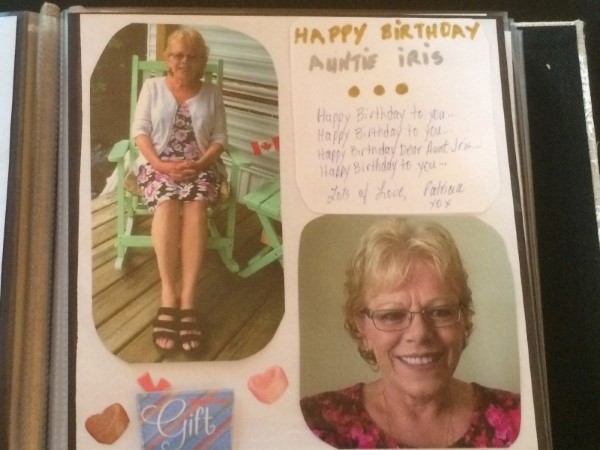 HAPPY BIRTHDAY
AUNTIE IRIS
Happy Birthday to you...
Happy Birthday to you...
Happy Birthday Dear Aunt Iris...
Happy Birthday to you...
Lots of Love, Patricia
xox
Gift